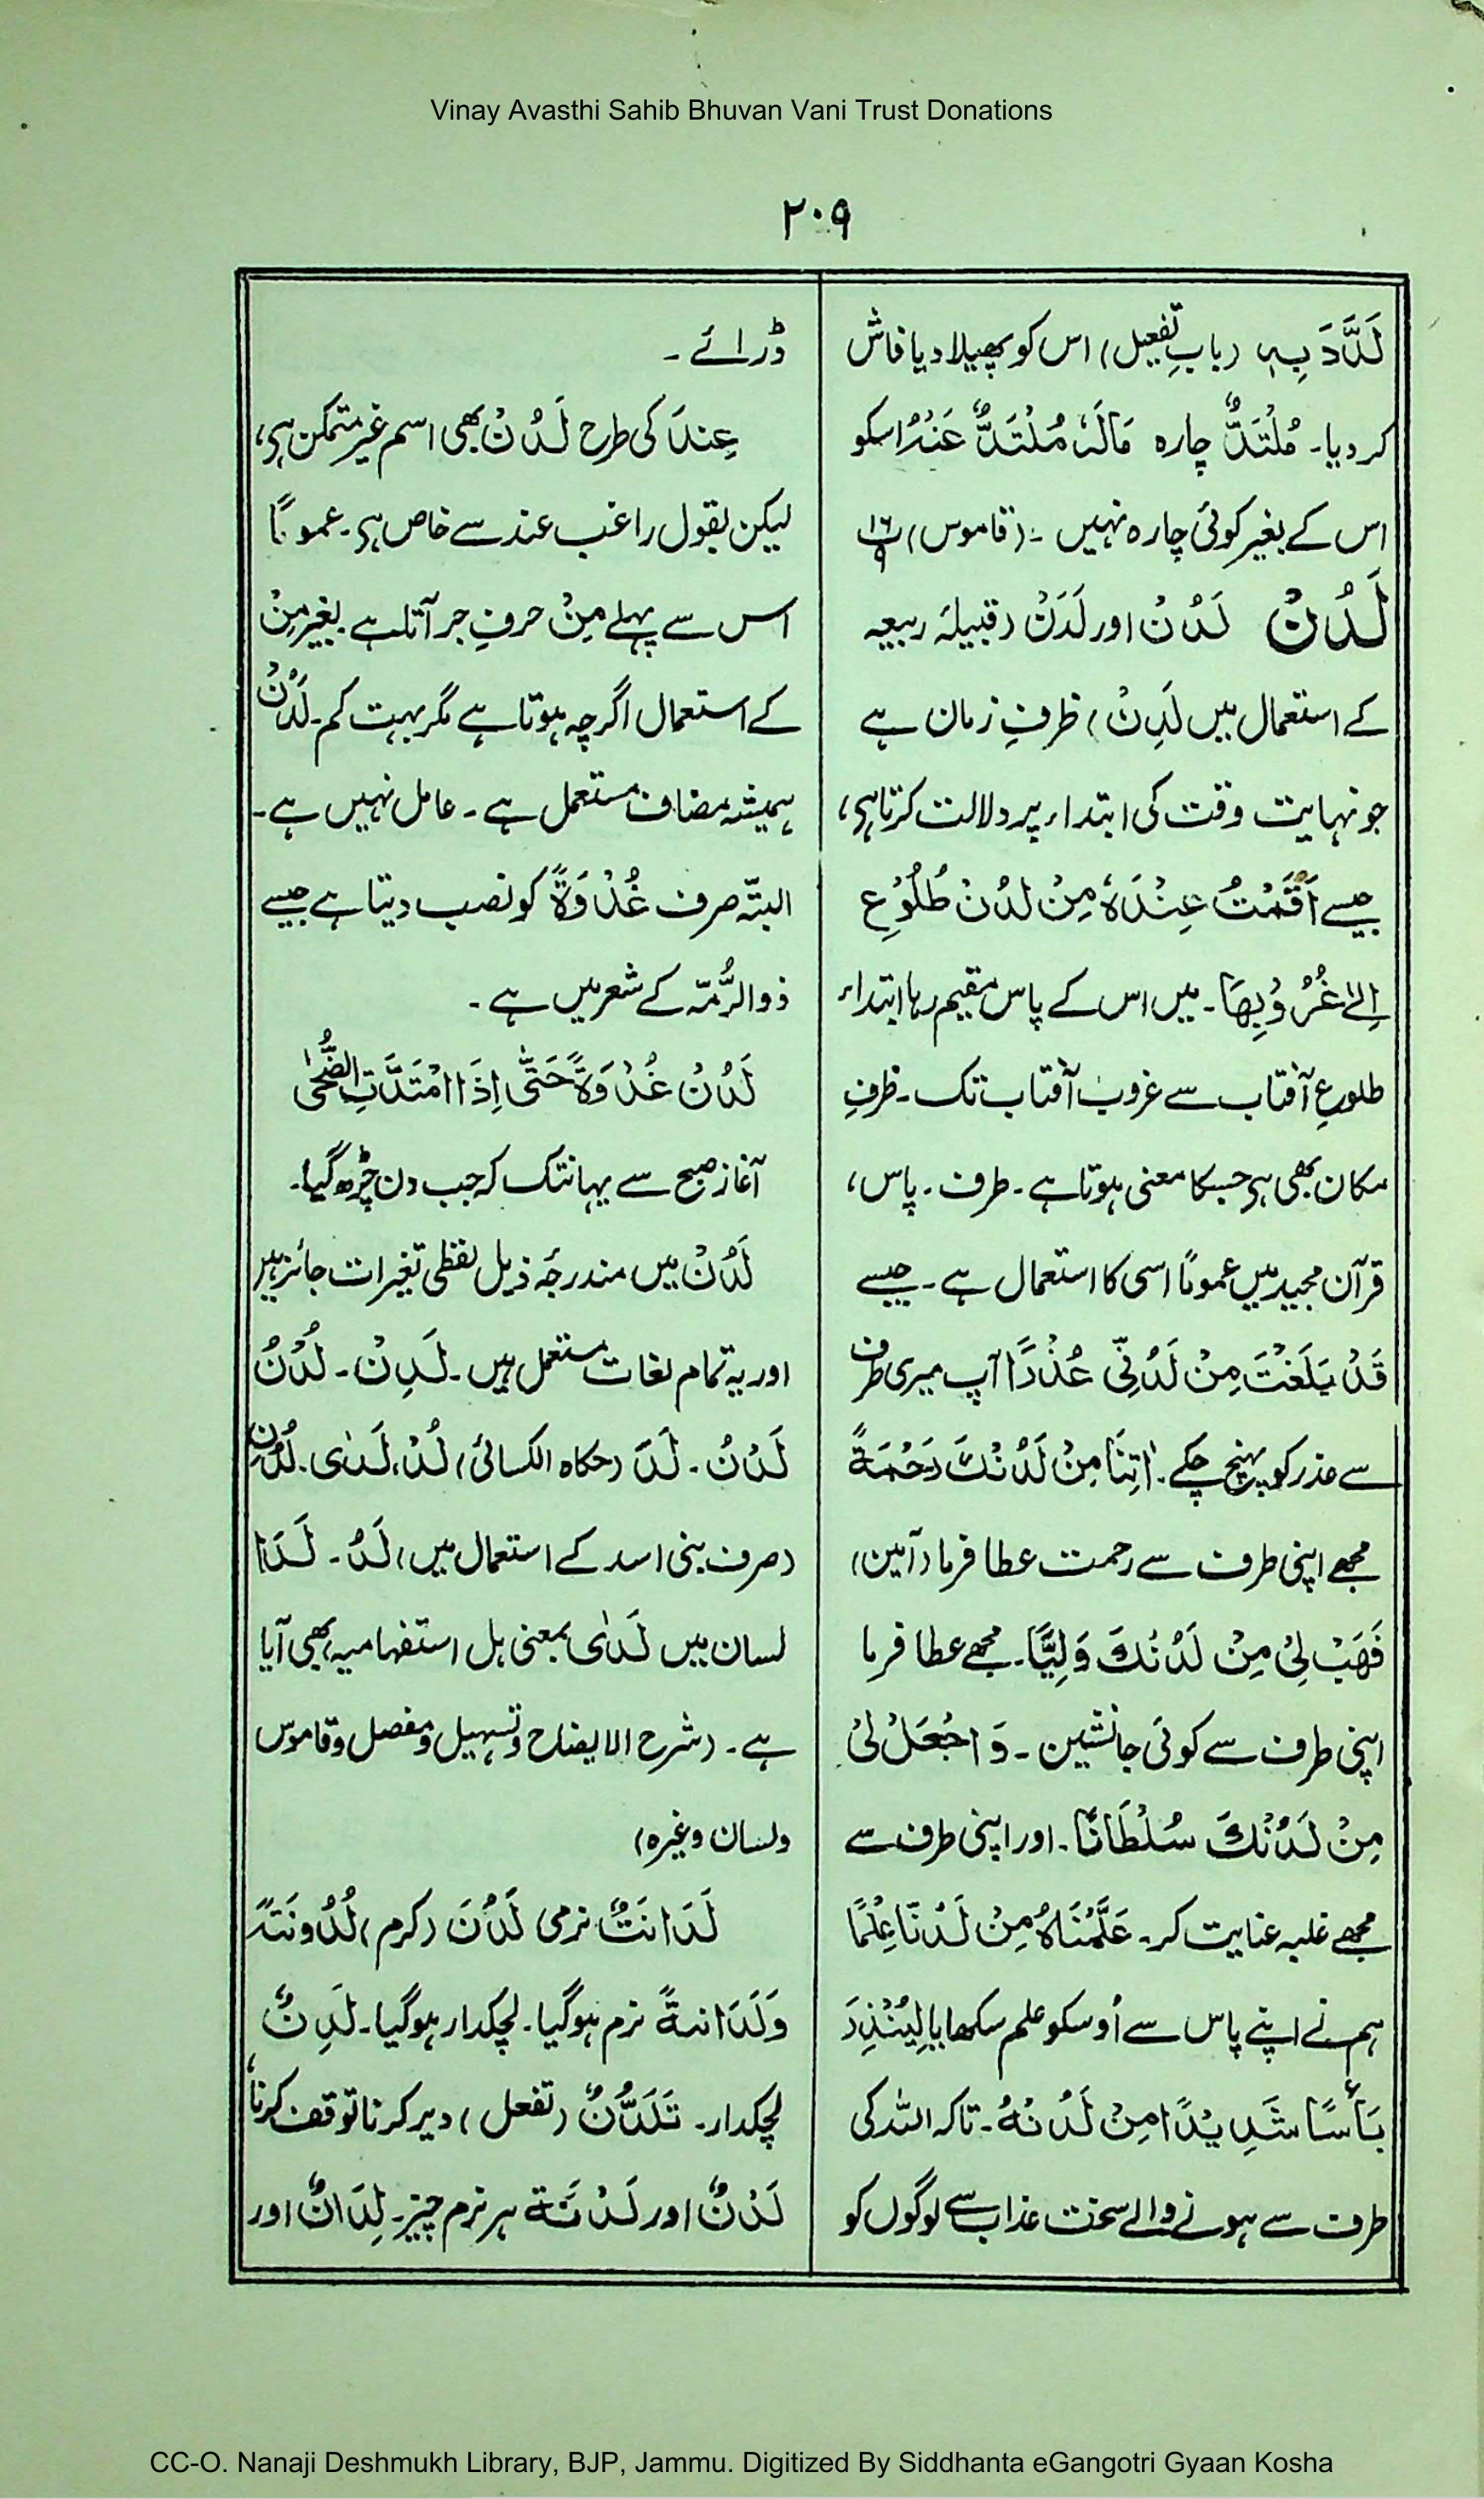 Vinay Avasthi Sahib Bhuvan Vani Trust Donations
۲۰۹
لَدَّدَ بِہٖ (بابِ تفعیل) اس کو پھیلا دیا فاش
کر دیا۔ مُلْتَدٌّ چارہ مَالَہٗ مُلْتَدٌّ عَنْہُ اسکو
اس کے بغیر کوئی چارہ نہیں ۔ (قاموس) ۱۶ ۹
لَدُنْ لَدُنْ اور لَدَنْ (قبیلۂ ربیعہ
کے استعمال میں لَدِنْ) ظرفِ زمان ہے
جو نہایت وقت کی ابتداء پر دلالت کرتا ہی،
جیسے اَقَمْتُ عِنْدَہٗ مِنْ لَدُنْ طُلُوْعِ
اِلٰے غُرُوْبِھَا۔ میں اس کے پاس مقیم رہا ابتداء
طلوعِ آفتاب سے غروب آفتاب تک۔ ظرفِ
مکان بھی ہی جسکا معنی ہوتا ہے۔ طرف۔ پاس،
قرآن مجید میں عموماً اسی کا استعمال ہے۔ جیسے
قَدْ بَلَغْتَ مِنْ لَدُنِّی عُذْرًا آپ میری طرف
سے عذر کو پہنچ چکے۔ اٰتِنَا مِنْ لَدُنْكَ رَحْمَةً
مجھے اپنی طرف سے رحمت عطا فرما (آمین)
فَھَبْ لِیْ مِنْ لَدُنْكَ وَلِیًّا۔ مجھے عطا فرما
اپنی طرف سے کوئی جانشین۔ وَاجْعَلْ لِیْ
مِنْ لَدُنْكَ سُلْطَانًا۔ اور اپنی طرف سے
مجھے غلبہ عنایت کر۔ عَلَّمْنَاہُ مِنْ لَدُنَّا عِلْمًا
ہم نے اپنے پاس سے اُوسکو علم سکھایا لِیُنْذِرَ
بَأْسًا شَدِیْدًا مِنْ لَدُنْہُ۔ تاکہ اللہ کی
طرف سے ہونے والے سخت عذاب سے لوگوں کو
ڈرائے۔
عِنْدَ کی طرح لَدُنْ بھی اسم غیر متمکن ہی،
لیکن بقول راغب عند سے خاص ہی۔ عموماً
اس سے پہلے مِنْ حرفِ جر آتا ہے بغیر مِنْ
کے استعمال اگرچہ ہوتا ہے مگر بہت کم۔ لَدُنْ
ہمیشہ مضاف مستعمل ہے۔ عامل نہیں ہے۔
البتّہ صرف غُدْوَةً کو نصب دیتا ہے جیسے
ذوالرُّمّہ کے شعر میں ہے۔
لَدُنْ غُدْوَةً حَتّٰی اِذَا امْتَدَّتِ الضُّحٰی
آغاز صبح سے یہانتک کہ جب دن چڑھ گیا۔
لَدُنْ میں مندرجۂ ذیل لفظی تغیرات جائز ہیں
اور یہ تمام لغات مستعمل ہیں۔ لَدِنْ۔ لُدُنْ
لَدْنُ۔ لَدَ (حکاہ الکسائی) لُدْ، لَدٰی۔ لَدُنِ
(صرف بنی اسد کے استعمال میں) لَدُ۔ لَدَا
لسان میں لَدٰی بمعنی ہل استفہامیہ بھی آیا
ہے۔ (شرح الایضاح و تسہیل و مفصل و قاموس
ولسان وغیرہ)
لَدَانَتٌ نرمی لَدُنَ (کرم) لُدُونَتَہً
وَلَدَانۃً نرم ہو گیا۔ لچکدار ہو گیا۔ لَدِنٌ
لچکدار۔ تَلَدُّنٌ (تفعل) دیر کرنا توقف کرنا،
لَدْنٌ اور لَدْنَۃ ہر نرم چیز۔ لِدَانٌ اور
CC-O. Nanaji Deshmukh Library, BJP, Jammu. Digitized By Siddhanta eGangotri Gyaan Kosha